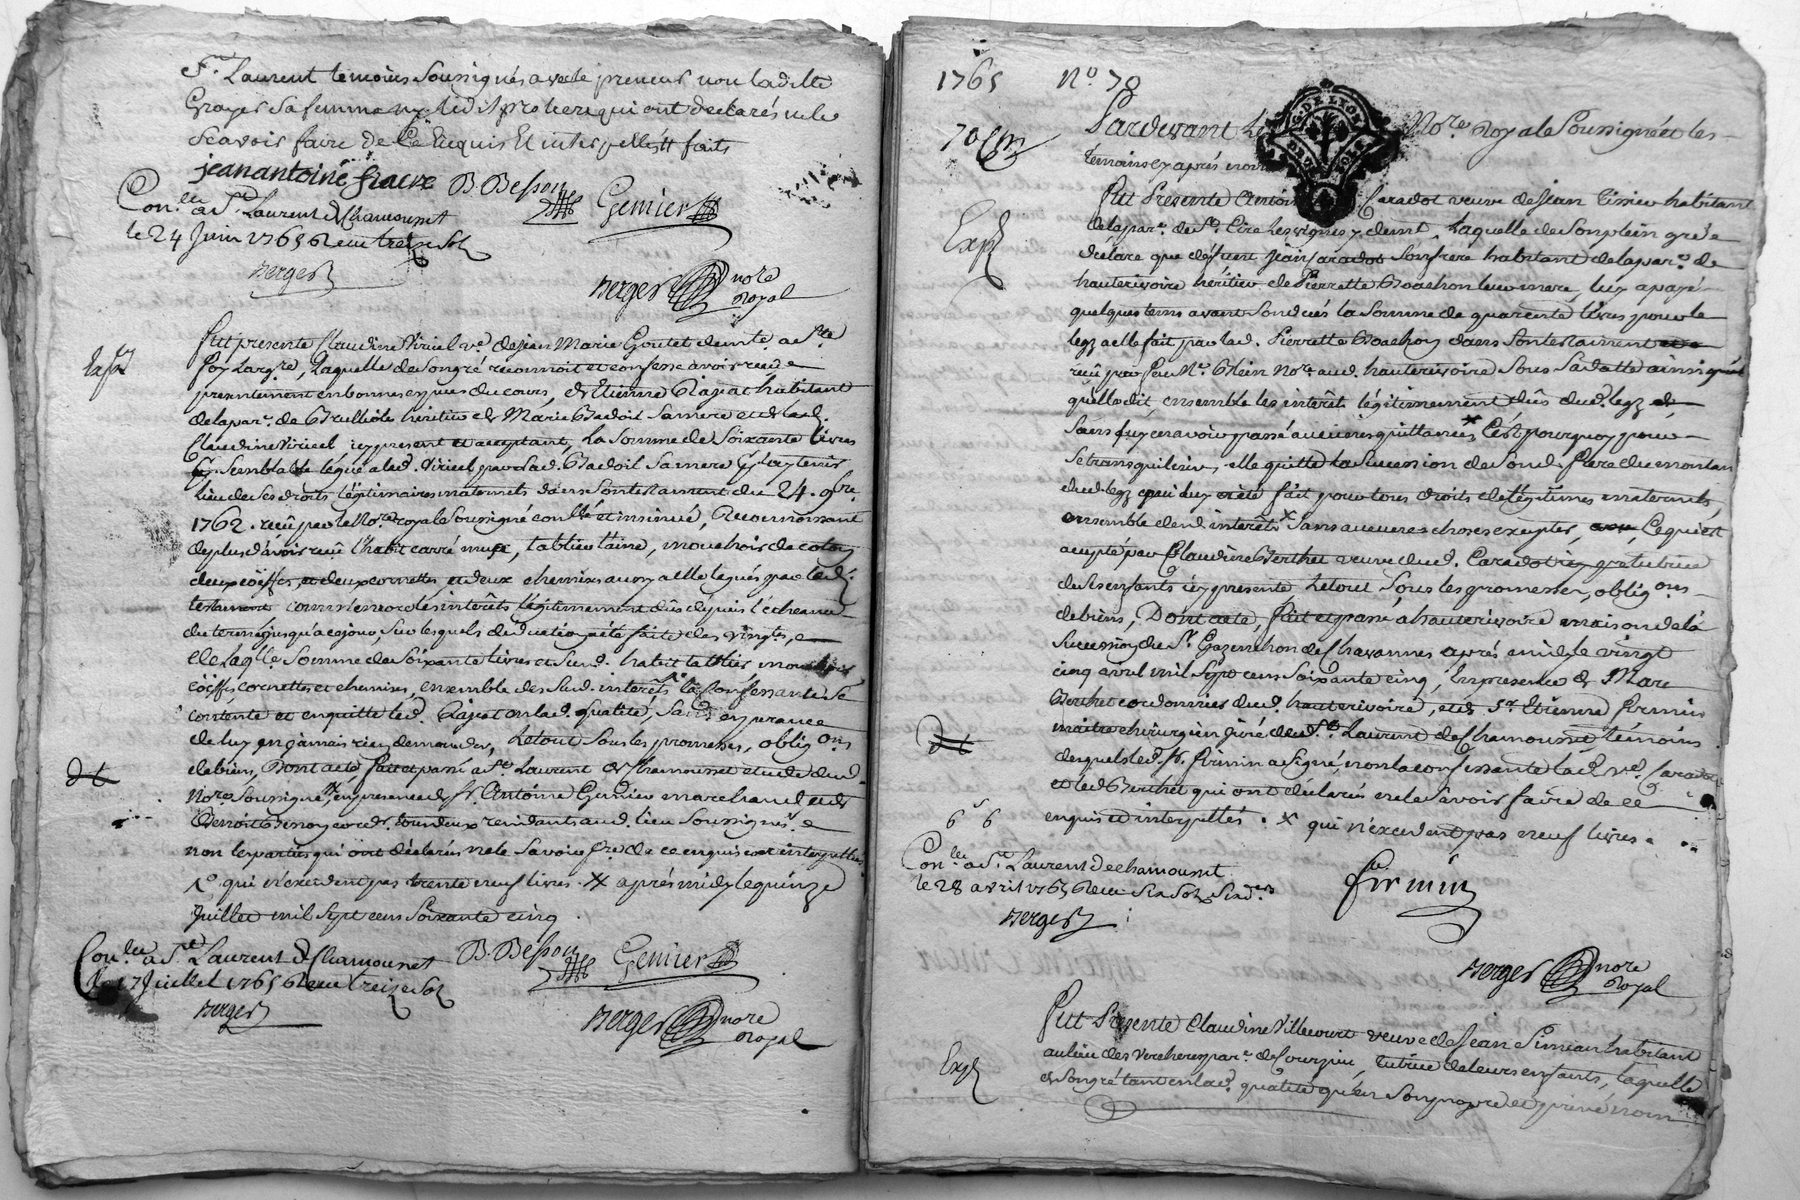 St. Laurent temoins Soussignés avec le preneur non ladite
Grayer sa femme ny ledit qui ont declarés ne le
Scavoir faire de ce Enquis Et interpellés faits
jean antoine fiacre B. Besson Genier
Con.lé a St. Laurent de Chamousset
le 24 Juin 1765 Receu treize Sol
Berger
Berger nore Royal
Fut presente Claudine Viriel ve. de jean Marie Goutet de Ste
foy Largre, Laquelle de Son gré reconnoit et confesse avoir recu
presentement en bonnes especes du cours, de Etienne Rajat habitant
de la par. de Brullioles heritier de Marie Badoit Sa mere et de lad.
Claudine Viriel icy present et acceptant, la Somme de Soixante livres
Semblable léguée a lad. Viriel par lad. Badoit Sa mere
lieu de Ses droits légitimaires maternels dans Son testament du 24. 9bre
1762. recû par le Nore. royal Soussigné conllé et insinué, Reconnoissant
de plus d'avoir recû l'habit carré tablier laine, mouchoir de coton
deux cöeffes, et deux cornettes, et deux chemises aussy a elle legués par led.
testament comme encore les intérêts légitimement dûs depuis l'écheance
du terme jusqu'a ce jour, Sur lesquels deduction a été faite des vingts, e
de laqlle Somme de Soixante livres et Sud. habit tablier mouchoir
cöeffes, cornettes et chemises, ensemble des Sud. intérêts la Confessante Se
contente et en quitte led. Rajat en lad. qualité, Sans esperance
de luy en jamais rien demander, Le tout Sous les promesses, obligons
de biens, Dont acte, fait et passé a St. Laurent de Chamousset etude dud.
Nore. Soussigné, en presence de Sr. Antoine Genier marchand et de
Benoit Besson tous deux residants aud. lieu Soussignés e
non les parties qui ont déclarés ne le Savoir fre. de ce enquis et interpellés
qui n'excedent pas trente neuf livres. X après midy le quinze
Juillet mil Sept cens Soixante cinq
Con.lé a St. Laurent de Chamousset B. Besson Genier
le 17 Juillet 1765 Receu treize Sol
Berger
Berger nore Royal
1765 No. 78
Pardevant Le Nore. Royal Soussigné et les
témoins cy après
Fut Presente Caradot veuve de Jean habitant
de la par. de St. Cire les vignes y demt. Laquelle de Son plein gré e
déclare que défunt Jean Caradot Son frère habitant de la par. de
hauterivoire héritier de Pierrette Bouchon leur mere, luy a payé
quelques tems avant Son decés la Somme de quarente livres pour le
legz a elle fait par lad. Pierrette Bouchon dans Son testament
recû par feu Me. Blein Nore. aud. hauterivoire Sous Sa datte ainsi qu'
qu'elle dit, ensemble les intérêts légitimement dûs dud. legz
Sans luy en avoir passé aucunes quittances, C'est pourquoy pour
Se tranquiliser, elle quitte la Succession de Sond. frere du montan
dud. legz qui luy a été fait pour tous droits de légitimes maternels,
ensemble desd. intérêts X Sans aucunes choses exepter, Ce qui est
accepté par Claudine Berthet veuve dud. Caradot tutrice
de Ses enfants icy presente Le tout Sous les promesses, obligons
de biens, Dont acte, fait et passé a hauterivoire maison de la
Succession de Sr. Gazenchon de Chavannes après midy le vingt
cinq avril mil Sept cens Soixante cinq, En presence de Marc
Berthet cordonnier dud. hauterivoire, et de Sr. Etienne firmin
maitre chirurgien juré dud. St. Laurent de Chamousset témoins
desquels led. Sr. firmin a Signé, non la confessante lad. ve. Caradot
et led. Berthet qui ont déclarés ne le Savoir faire de ce
enquis et interpellés. X qui n'excedent pas neuf livres.
6 6
Con.lé a St. Laurent de chamousset
le 28 avril 1765 Receu Six Sols Six drs
Berger
firmin
Berger nore Royal
Fut Presente Claudine Villecourt veuve de Jean Simean habitant
au lieu des Verchere par. de Courzieu, tutrice de leurs enfants, laquelle
de Son gré tant en lad. qualité qu'en Son propre et privé nom